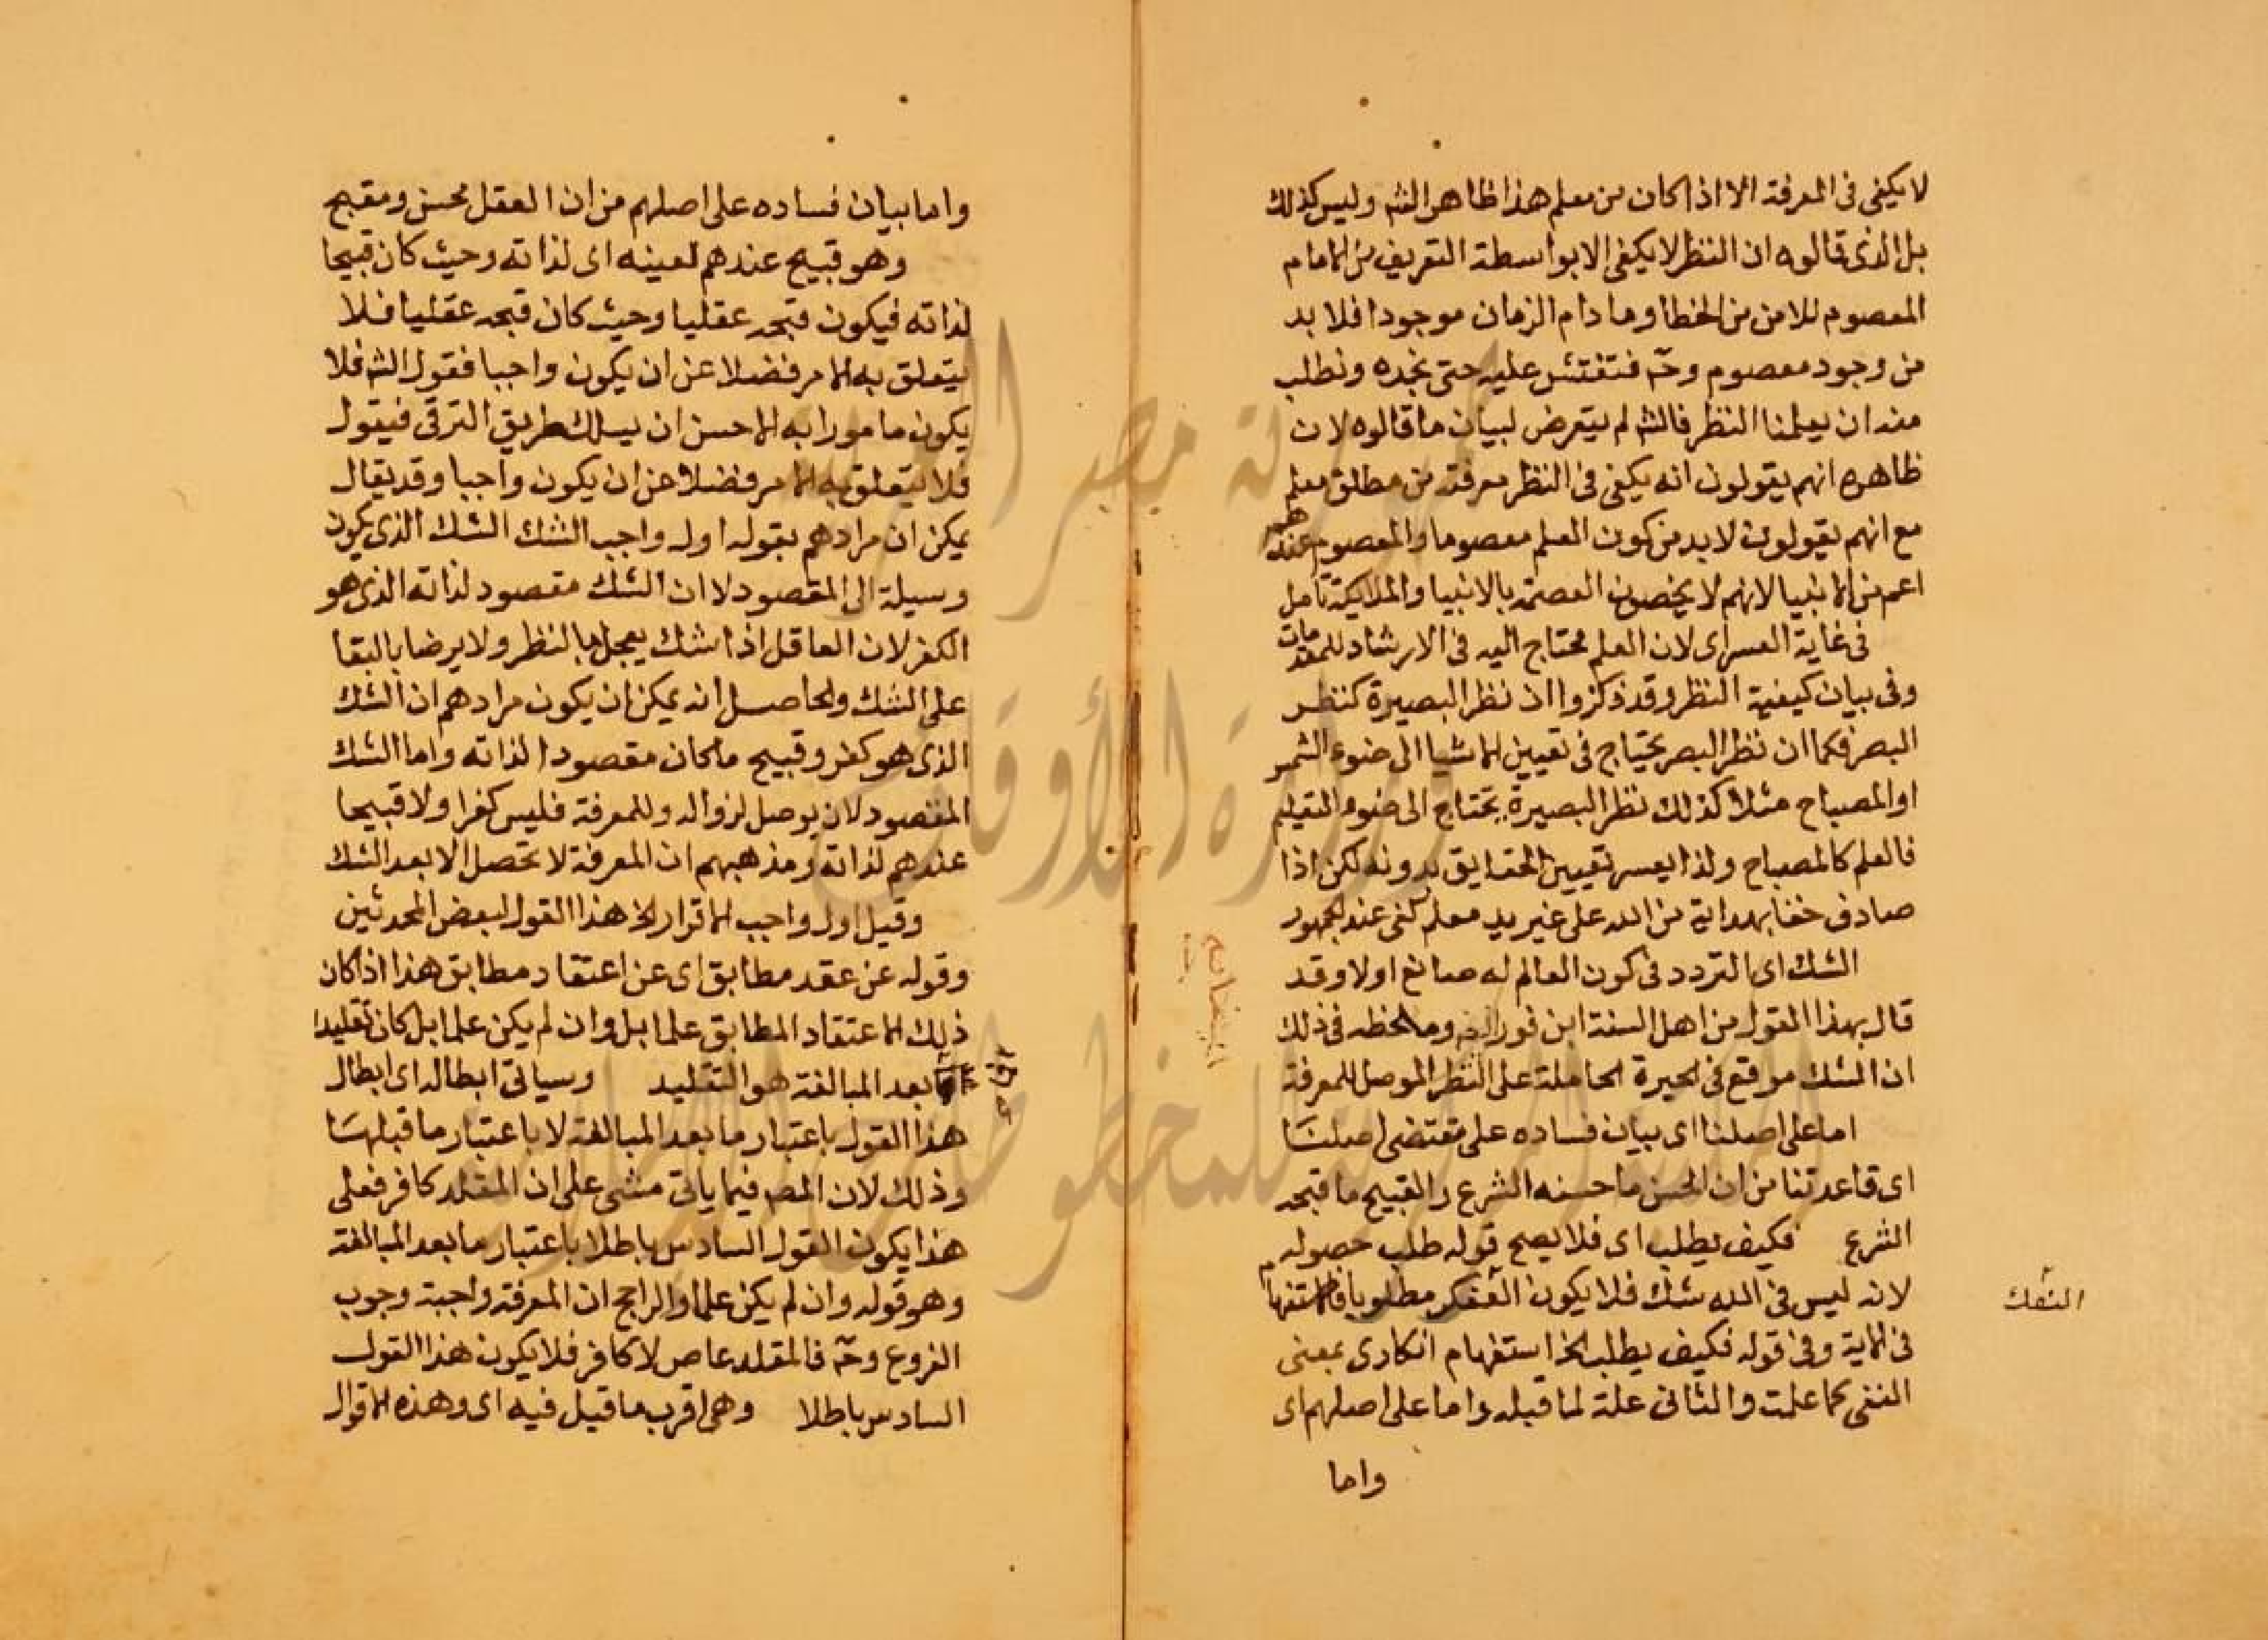 لا يكفى فى المعرفة الا اذا كان من معلم هذا ظاهر الشم وليس كذلك
بل الذى قالوه ان النظر لا يكفى الا بواسطة التعريف من الامام
المعصوم للامن من الخطا وما دام الزمان موجودا فلا بد
من وجود معصوم وحـ فنفتش عليه حتى نجده ونطلب
منه ان يعلمنا النظر فالشم لم يتعرض لبيان ما قالوه لان
ظاهره انهم يقولون انه يكفى فى النظر معرفته من مطلق معلم
مع انهم يقولون لا بد من كون المعلم معصوما والمعصوم عندهم
اعم من الانبيا لانهم لا يخصون العصمة بالانبيا والملايكة تامل
فى غاية العسر اى لان المعلم محتاج اليه فى الارشاد للمقدمات
وفى بيان كيفية النظر وقد ذكروا ان نظر البصيرة كنظر
البصر فكما ان نظر البصر يحتاج فى تعيين الاشيا الى ضوء الشمس
او المصباح مثلا كذلك نظر البصيرة يحتاج الى ضوء التعليم
فالعلم كالمصباح ولذا يعسر تعيين الحقايق بدونه لكن اذا
صادف خفا بهداية من الله على غير يد معلم كفى عند الجمهور
الشك اى التردد فى كون العالم له صانع اولا وقد
قال بهذا القول من اهل السنة ابن فورك وملحظه فى ذلك
ان الشك موقع فى الحيرة الحاملة على النظر الموصل للمعرفة
اما على اصلنا اى بيان فساده على مقتضى اصلنا
اى قاعدتنا من ان الحسن ما حسنه الشرع والقبيح ما قبحه
الشرع فكيف يطلب اى فلا يصح قوله طلب حصوله
لانه ليس فى الله شك فلا يكون التفكر مطلوبا فالاستفهام
فى الاية وفى قوله فكيف يطلب الخ استفهام انكارى بمعنى
النفى كما علمت والثانى علة لما قبله واما على اصلهم اى
واما
واما بيان فساده على اصلهم من ان العقل محسن ومقبح
وهو قبيح عندهم لعينه اى لذاته وحيث كان قبيحا
لذاته فيكون قبحه عقليا وحيث كان قبحه عقليا فلا
يتعلق به الامر فضلا عن ان يكون واجبا فقول الشم فلا
يكون مامورا به الاحسن ان يسلك طريق الترقى فيقول
فلا يتعلق به الامر فضلا عن ان يكون واجبا وقد يقال
يمكن ان مرادهم بقوله اول واجب الشك الشك الذى يكون
وسيلة الى المقصود لا ان الشك مقصود لذاته الذى هو
الكفر لان العاقل اذا شك يعجل بالنظر ولا يرضا بالبقا
على الشك والحاصل انه يمكن ان يكون مرادهم ان الشك
الذى هو كفر وقبيح ما كان مقصودا لذاته واما الشك
المقصود لان يوصل لزواله وللمعرفة فليس كفرا ولا قبيحا
عندهم لذاته ومذهبهم ان المعرفة لا تحصل الا بعد الشك
وقيل اول واجب الاقرار الخ هذا القول لبعض المحدثين
وقوله عن عقد مطابق اى عن اعتقاد مطابق هذا اذا كان
ذلك الاعتقاد المطابق علما بل وان لم يكن علما بل كان تقليدا
بعد المبالغة هو التقليد وسياتى ابطاله اى ابطال
هذا القول باعتبار ما بعد المبالغة لا باعتبار ما قبلها
وذلك لان المصـ فيما ياتى مشى على ان المقلد كافر فعلى
هذا يكون القول السادس باطلا باعتبار ما بعد المبالغة
وهو قوله وان لم يكن علما والراجح ان المعرفة واجبة وجوب
الفروع وحـ فالمقلد عاص لا كافر فلا يكون هذا القول
السادس باطلا وهى اقرب ما قيل فيه اى وهذه الاقوال